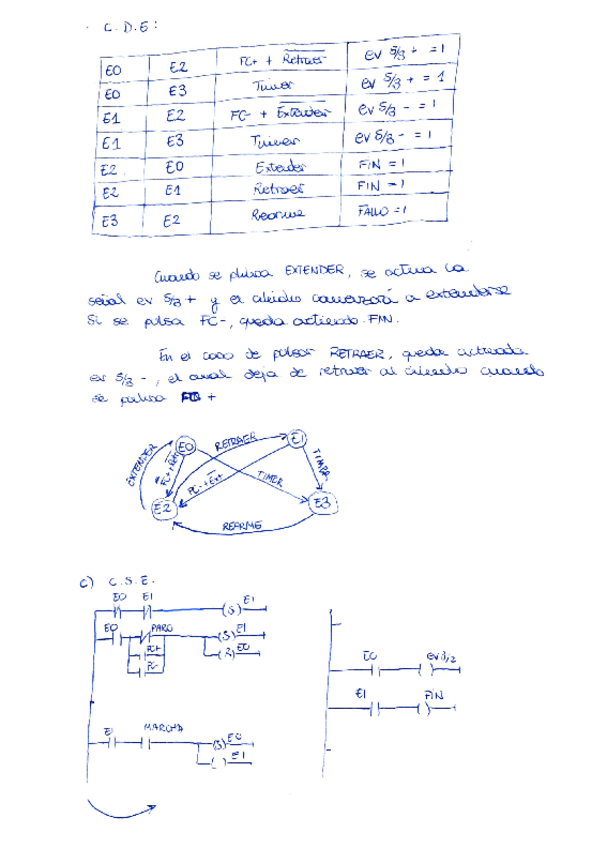 · C.D.E:
E0 E2 FC+ + Retraer ev 5/3 + = 1
E0 E3 Timer ev 5/3 + = 1
E1 E2 FC- + Extender ev 5/3 - = 1
E1 E3 Timer ev 5/3 - = 1
E2 E0 Extender FIN = 1
E2 E1 Retraer FIN = 1
E3 E2 Rearme FALLO = 1
Cuando se pulsa EXTENDER, se activa la
señal ev 5/3 + y el cilindro comenzará a extenderse
Si se pulsa FC-, queda activado FIN.
En el caso de pulsar RETRAER, queda activada
ev 5/3 -, el cual deja de retraer al cilindro cuando
se pulsa FC +
EXTENDER
E0
RETRAER
E1
TIMER
TIMER
FC- + Ext
E2
E3
REARME
c) C.S.E.
E0 E1 (S) E1
E0 PARO (S) E1
FC+ (R) E0
FC-
E1 MARCHA (S) E0
( ) E1
E0 ev 3/2
E1 FIN